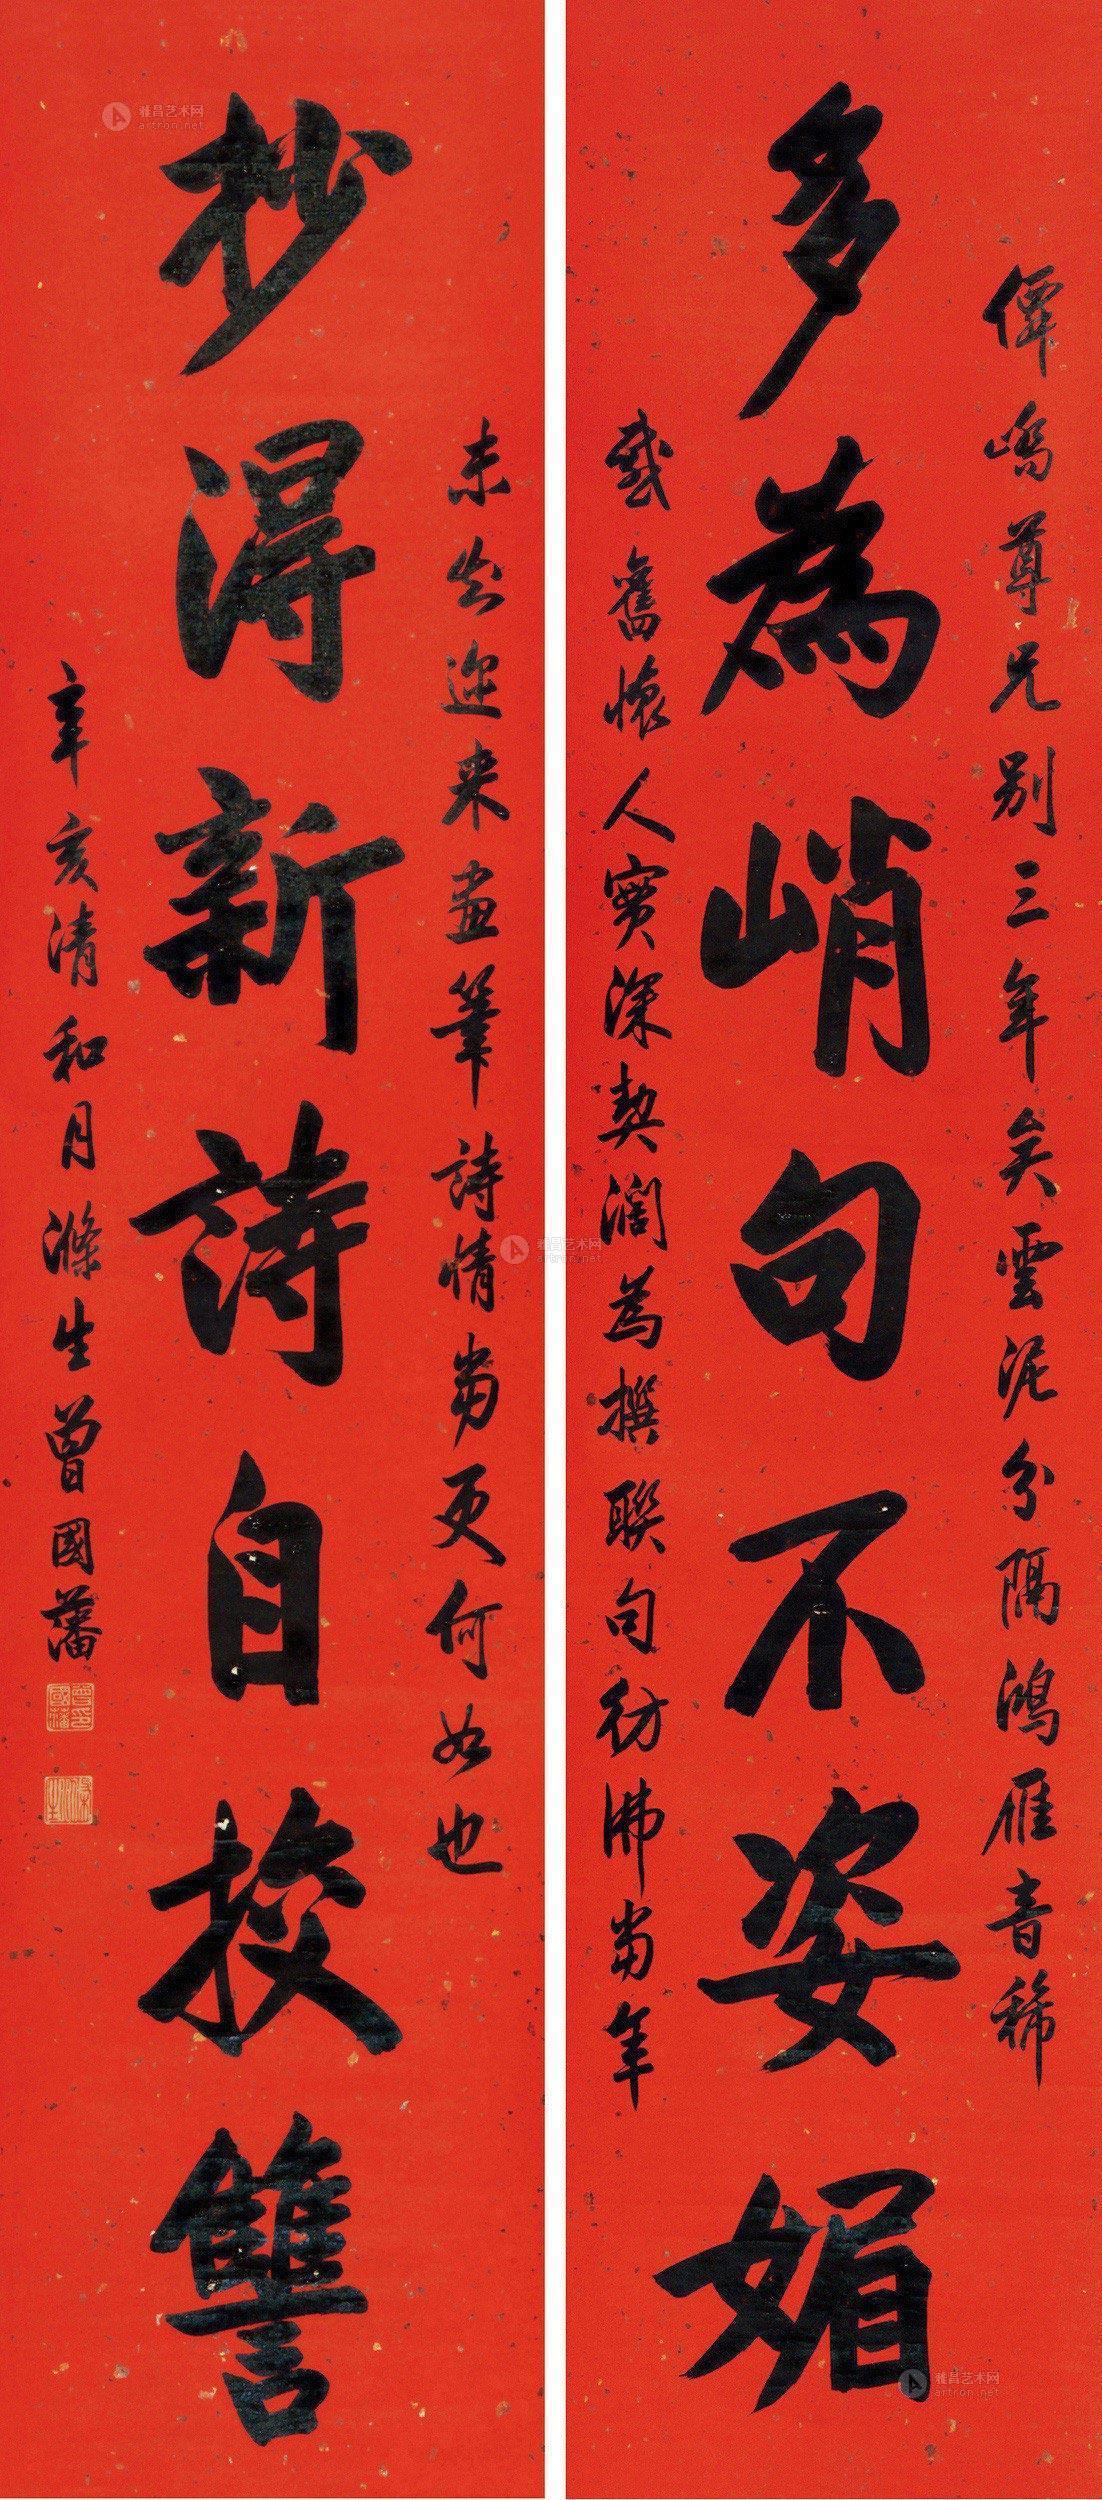 僊嶠尊兄別三年矣雲泥分隔鴻雁音稀
多為峭句不姿媚
感舊懷人實深契濶為撰聯句彷彿當年
未知邇来畫筆詩情當更何如也
抄得新詩自校讐
辛亥清和月滌生曾國藩
曾國藩印
滌生
雅昌艺术网
artron.net
雅昌艺术网
artron.net
雅昌艺术网
artron.net